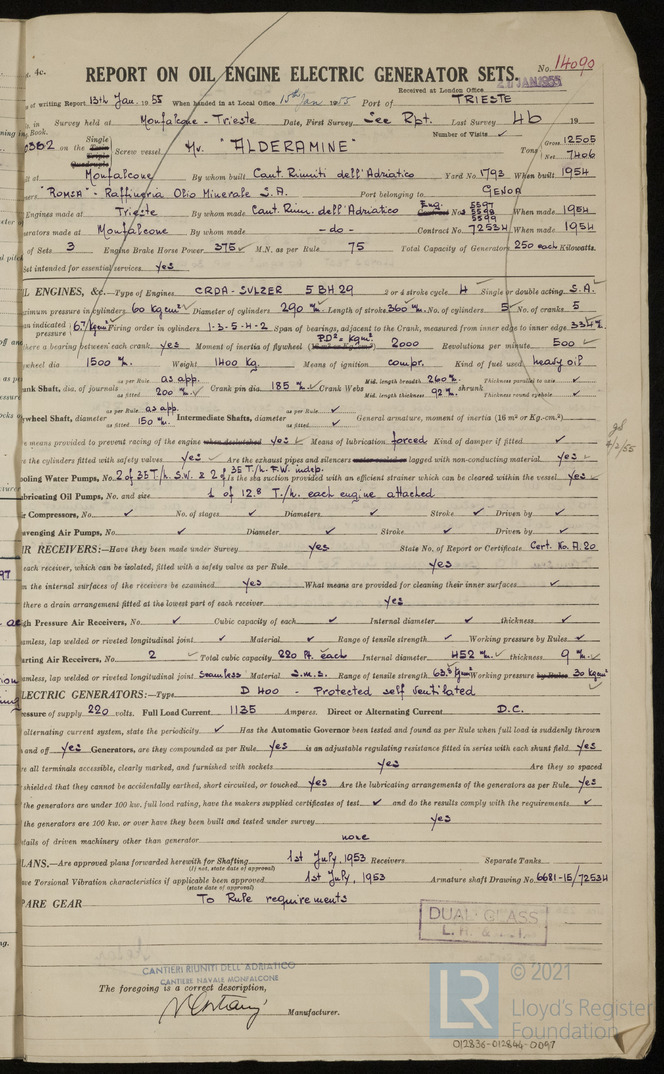 4c.
REPORT ON OIL ENGINE ELECTRIC GENERATOR SETS.
No. 14090
Received at London Office JAN 1955
of writing Report 13th Jan. 1955 When handed in at Local Office 15th Jan 1955 Port of TRIESTE
in Survey held at Monfalcone - Trieste Date, First Survey See Rpt. Last Survey 4b 19
Book. Number of Visits ✓
on the Single Triple Quadruple Screw vessel Mv. "ALDERAMINE" Tons Gross 12505 Net 7406
Monfalcone By whom built Cant. Riuniti dell'Adriatico Yard No. 1793 When built 1954
"ROMSA" - Raffineria Olio Minerale S.A. Port belonging to GENOA
Engines made at Trieste By whom made Cant. Riun. dell'Adriatico Eng. Nos 5597 5598 5599 When made 1954
Monfalcone By whom made - do - Contract No. 72534 When made 1954
of Sets 3 Engine Brake Horse Power 375 ✓ M.N. as per Rule 75 Total Capacity of Generators 250 each Kilowatts.
Set intended for essential services yes
ENGINES, &c.—Type of Engines CRDA - SULZER 5 BH 29 2 or 4 stroke cycle 4 Single or double acting S.A.
pressure in cylinders 60 kg/cm² ✓ Diameter of cylinders 290 m/m. Length of stroke 360 m/m. No. of cylinders 5 No. of cranks 5
indicated pressure 6.7 kg/cm² Firing order in cylinders 1-3-5-4-2 Span of bearings, adjacent to the Crank, measured from inner edge to inner edge 334 m/m.
there a bearing between each crank. yes Moment of inertia of flywheel PD² = Kgm² 2000 Revolutions per minute 500 ✓
dia 1500 m/m. Weight 1400 Kg. Means of ignition compr. Kind of fuel used heavy oil
Shaft, dia. of journals as per Rule as app. as fitted 200 m/m. ✓ Crank pin dia. 185 m/m. ✓ Crank Webs Mid. length breadth 260 m/m. Mid. length thickness 92 m/m. shrunk Thickness parallel to axis ✓ Thickness round eyehole ✓
Shaft, diameter as per Rule as app. as fitted 150 m/m. Intermediate Shafts, diameter as per Rule ✓ as fitted ✓ General armature, moment of inertia (16 m² or Kg.-cm.²)
means provided to prevent racing of the engine when declutched yes ✓ Means of lubrication forced Kind of damper if fitted ✓
the cylinders fitted with safety valves yes ✓ Are the exhaust pipes and silencers water cooled or lagged with non-conducting material yes ✓
Water Pumps, No. 2 of 35 T/h. S.W. & 2 of 35 T/h. F.W. indep. Is the sea suction provided with an efficient strainer which can be cleared within the vessel yes ✓
Oil Pumps, No. and size 1 of 12.8 T./h. each engine attached
Compressors, No. ✓ No. of stages ✓ Diameters ✓ Stroke ✓ Driven by ✓
Air Pumps, No. ✓ Diameter ✓ Stroke ✓ Driven by ✓
RECEIVERS:—Have they been made under Survey yes State No. of Report or Certificate Cert. No. A. 20
each receiver, which can be isolated, fitted with a safety valve as per Rule yes
the internal surfaces of the receivers be examined yes What means are provided for cleaning their inner surfaces ✓
there a drain arrangement fitted at the lowest part of each receiver yes
Pressure Air Receivers, No. ✓ Cubic capacity of each ✓ Internal diameter ✓ thickness ✓
lap welded or riveted longitudinal joint ✓ Material ✓ Range of tensile strength ✓ Working pressure by Rules ✓
Air Receivers, No. 2 ✓ Total cubic capacity 220 lt. each Internal diameter 452 m/m. ✓ thickness 9 m/m. ✓
lap welded or riveted longitudinal joint Seamless Material S.M.S. Range of tensile strength Working pressure by Rules 30 kg/cm²
ELECTRIC GENERATORS:—Type D 400 - Protected self ventilated
of supply 220 volts. Full Load Current 1135 Amperes. Direct or Alternating Current D.C.
alternating current system, state the periodicity ✓ Has the Automatic Governor been tested and found as per Rule when full load is suddenly thrown
and off yes Generators, are they compounded as per Rule yes is an adjustable regulating resistance fitted in series with each shunt field yes
all terminals accessible, clearly marked, and furnished with sockets yes Are they so spaced
shielded that they cannot be accidentally earthed, short circuited, or touched yes Are the lubricating arrangements of the generators as per Rule yes
the generators are under 100 kw. full load rating, have the makers supplied certificates of test ✓ and do the results comply with the requirements ✓
the generators are 100 kw. or over have they been built and tested under survey yes
of driven machinery other than generator none
—Are approved plans forwarded herewith for Shafting 1st July, 1953 Receivers Separate Tanks
(If not, state date of approval)
Torsional Vibration characteristics if applicable been approved 1st July, 1953 Armature shaft Drawing No. 6681-15/72534
(state date of approval)
GEAR To Rule requirements
DUAL CLASS
CANTIERI RIUNITI DELL'ADRIATICO
CANTIERE NAVALE MONFALCONE
The foregoing is a correct description,
Manufacturer.
LR © 2021
Lloyd's Register
Foundation
012836-012844-0097